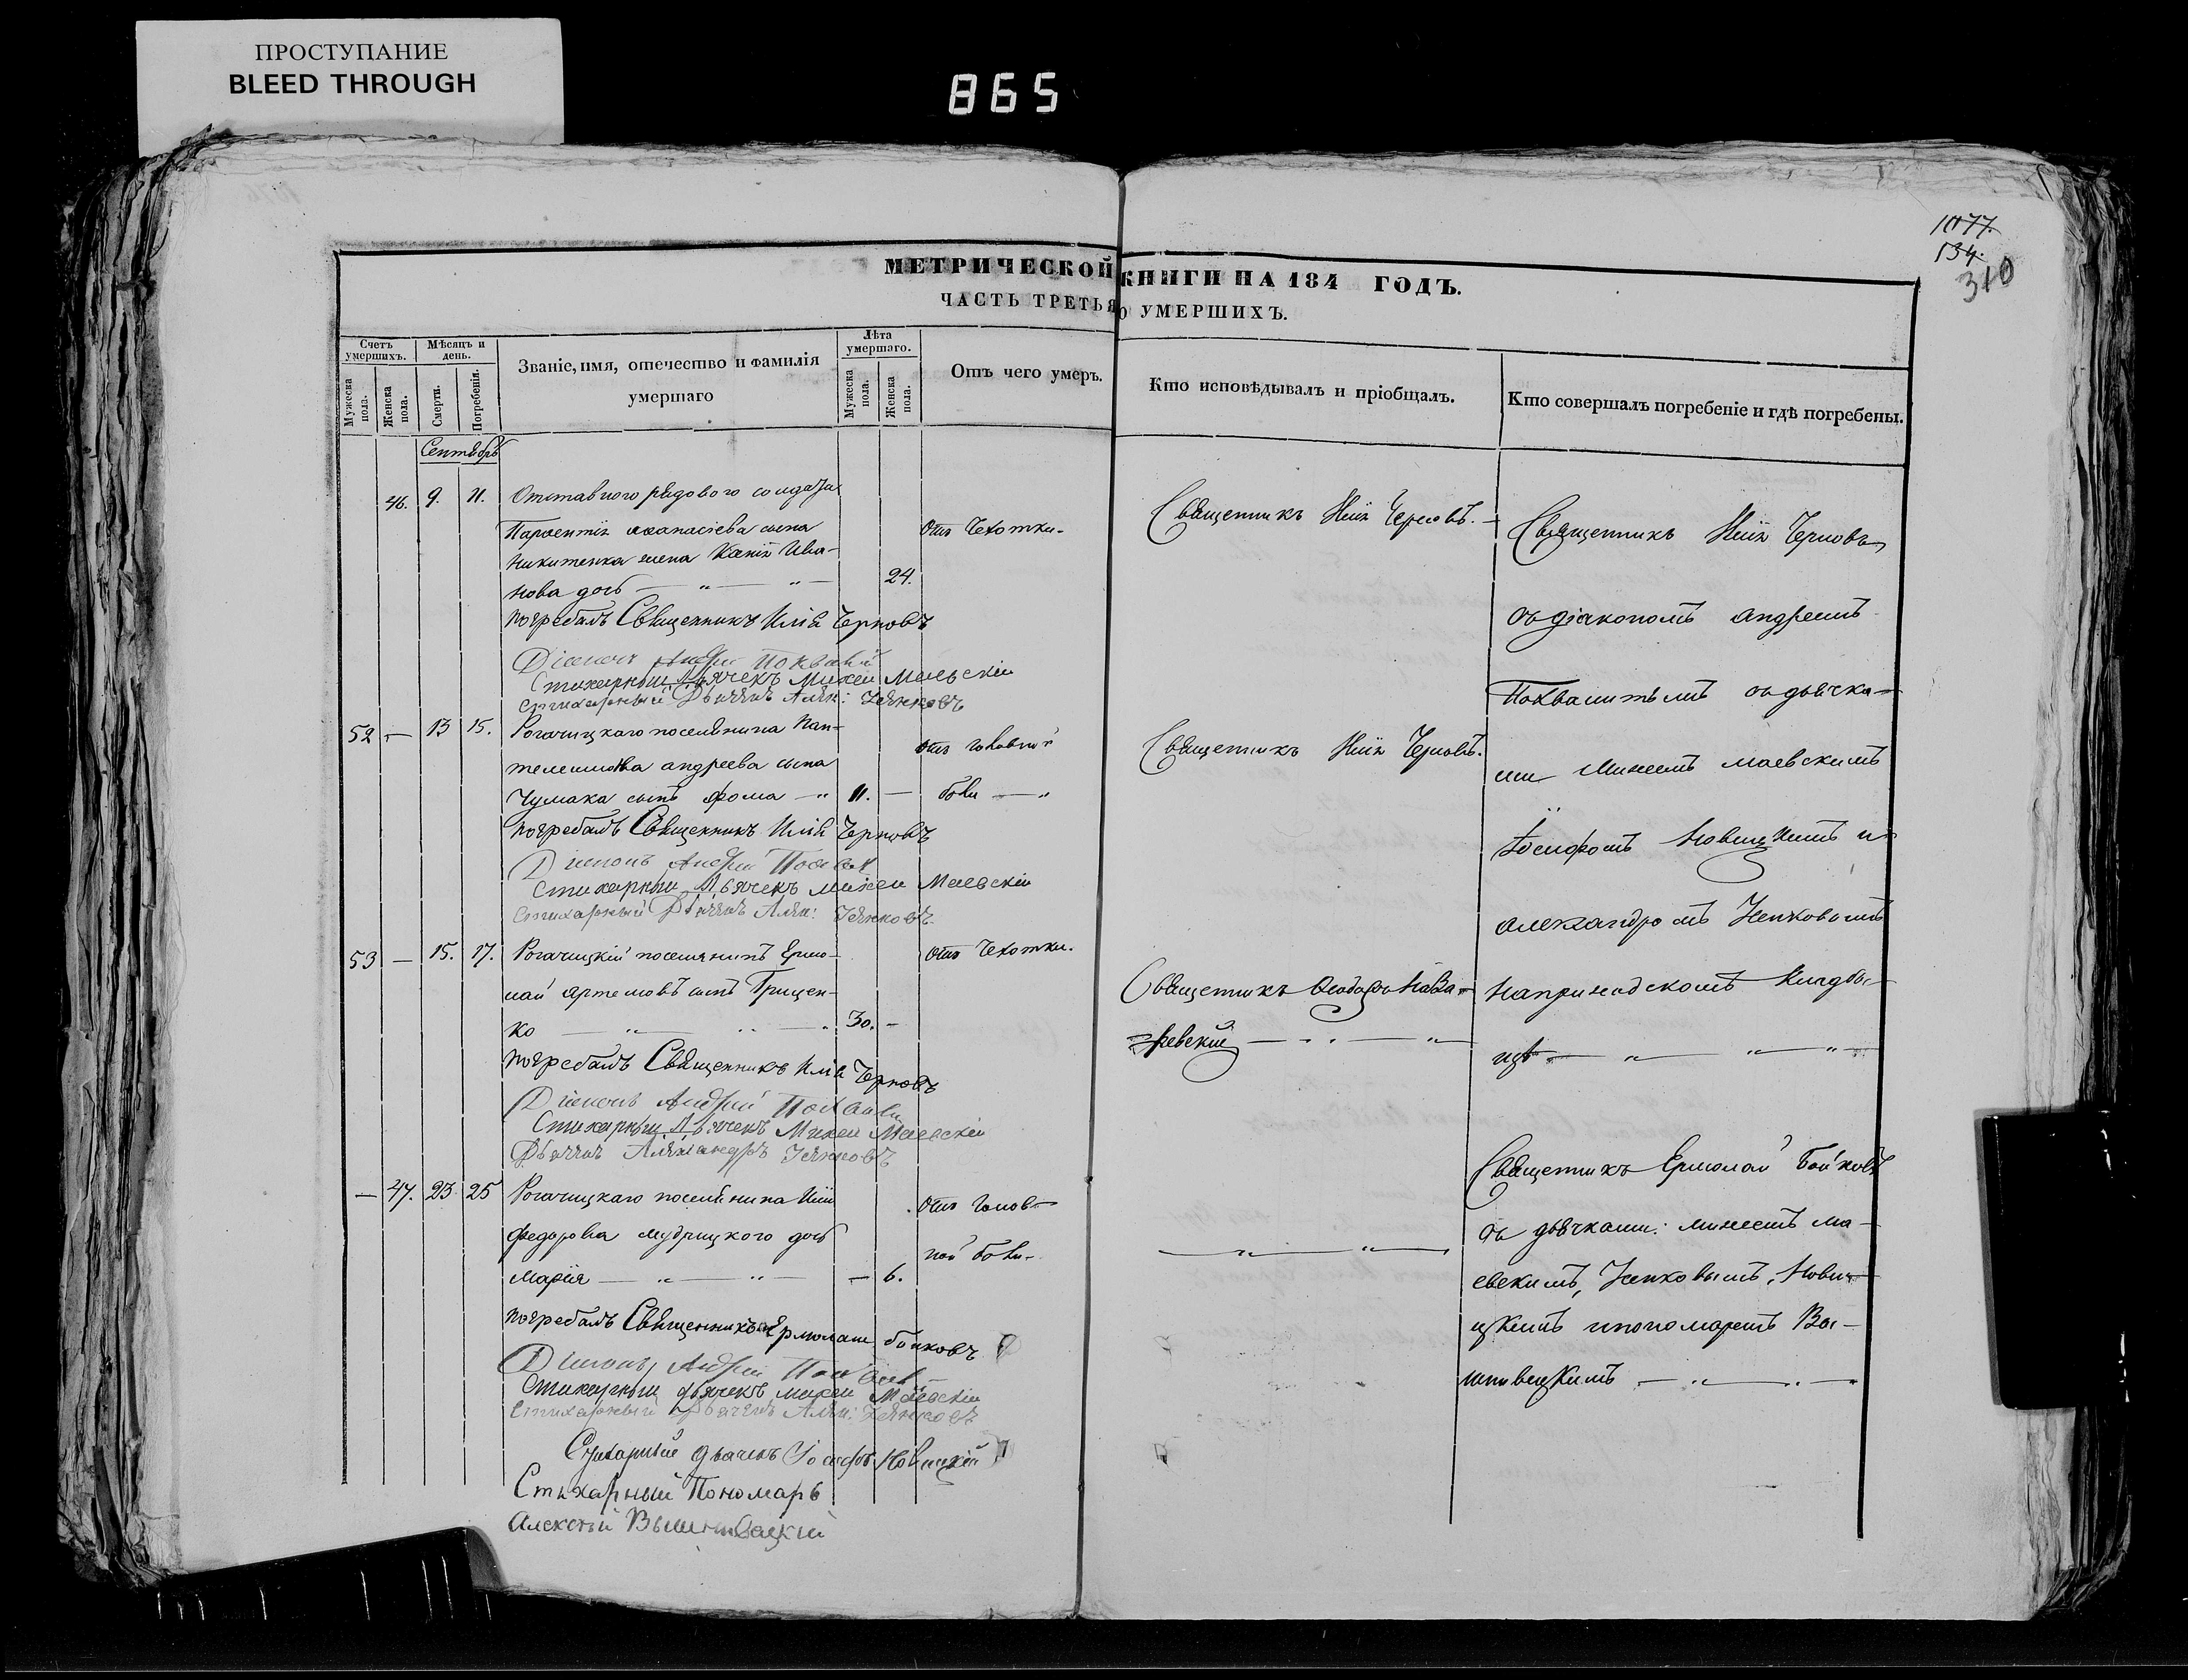 ПРОСТУПАНИЕ
BLEED THROUGH
865
1077.
134.
310
МЕТРИЧЕСКОЙ КНИГИ НА 184 ГОДЪ.
ЧАСТЬ ТРЕТЬЯ О УМЕРШИХЪ.
Счетъ умершихъ.
Мужеска пола.
Женска пола.
Мѣсяцъ и день.
Смерти.
Погребенія.
Званіе, имя, отечество и фамилія
умершаго
Лѣта умершаго.
Мужеска пола.
Женска пола.
Отъ чего умеръ.
Кто исповѣдывалъ и пріобщалъ.
Кто совершалъ погребеніе и гдѣ погребены.
Сентябрь
46. 9. 11. Отставного рядового солдата
Парфентія Афанасіева сына
Никитенка жена Ксенія Ива-
нова дочь 24.
отъ Чехотки.
Священникъ Илія Черновъ.
погребалъ Священникъ Илія Черновъ
Діаконъ Андрей
Стихарный Дьячекъ Михей Маевскій
Стихарный Дьячекъ Алек:
52 — 13 15. Рогачицкаго поселянина Пан-
телеимона андреева сына
Чумака сынъ Фома 11. —
отъ головной
боли
Священникъ Илія Черновъ.
погребалъ Священникъ Илія Черновъ
Діаконъ Андрей
Стихарный Дьячекъ Михей Маевскій
Стихарный Дьячекъ Алек:
53 — 15. 17. Рогачицкій поселянинъ Ермо-
лай Артемовъ сынъ Грицен-
ко 30. —
отъ Чехотки.
Священникъ Назаревскій
погребалъ Священникъ Илія Черновъ
Діаконъ Андрей
Стихарный Дьячекъ Михей Маевскій
Дьячекъ Александръ
— 47. 23 25 Рогачицкаго поселянина Иліи
Федорова Мудрицкого дочь
Марія — 6.
отъ голов-
ной боли.
погребалъ Священникъ Ермолай Бойковъ
Діаконъ Андрей
Стихарный дьячекъ Михей Маевскій
Стихарный Дьячекъ Алек:
Стихарный дьячекъ Іосифъ Новицкій
Стихарный Пономарь
Алексѣй
Священникъ Илія Черновъ
съ діакономъ Андреемъ
съ дьячка-
ми Михеемъ Маевскимъ
Іосифомъ Новицкимъ и
Александромъ
на приходскомъ кладби-
щѣ
Священникъ Ермолай Бойковъ
съ дьячками: Михеемъ Ма-
евскимъ, Нови-
цкимъ и пономаремъ